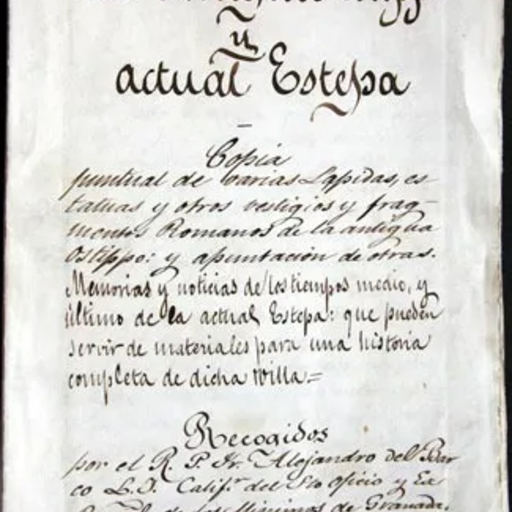 y
actual Estepa
Copia
puntual de varias Lapidas, es-
tatuas y otros vestigios y frag-
mentos Romanos de la antigua
Ostippo: y apuntación de otras.
Memorias y noticias de los tiempos medio, y
último de la actual Estepa: que pueden
servir de materiales para una historia
completa de dicha villa=
Recogidos
por el R. P. Fr. Alejandro del Bar
co L. J. Calif.r del Sto oficio y Ex
de los Minimos de Granada.